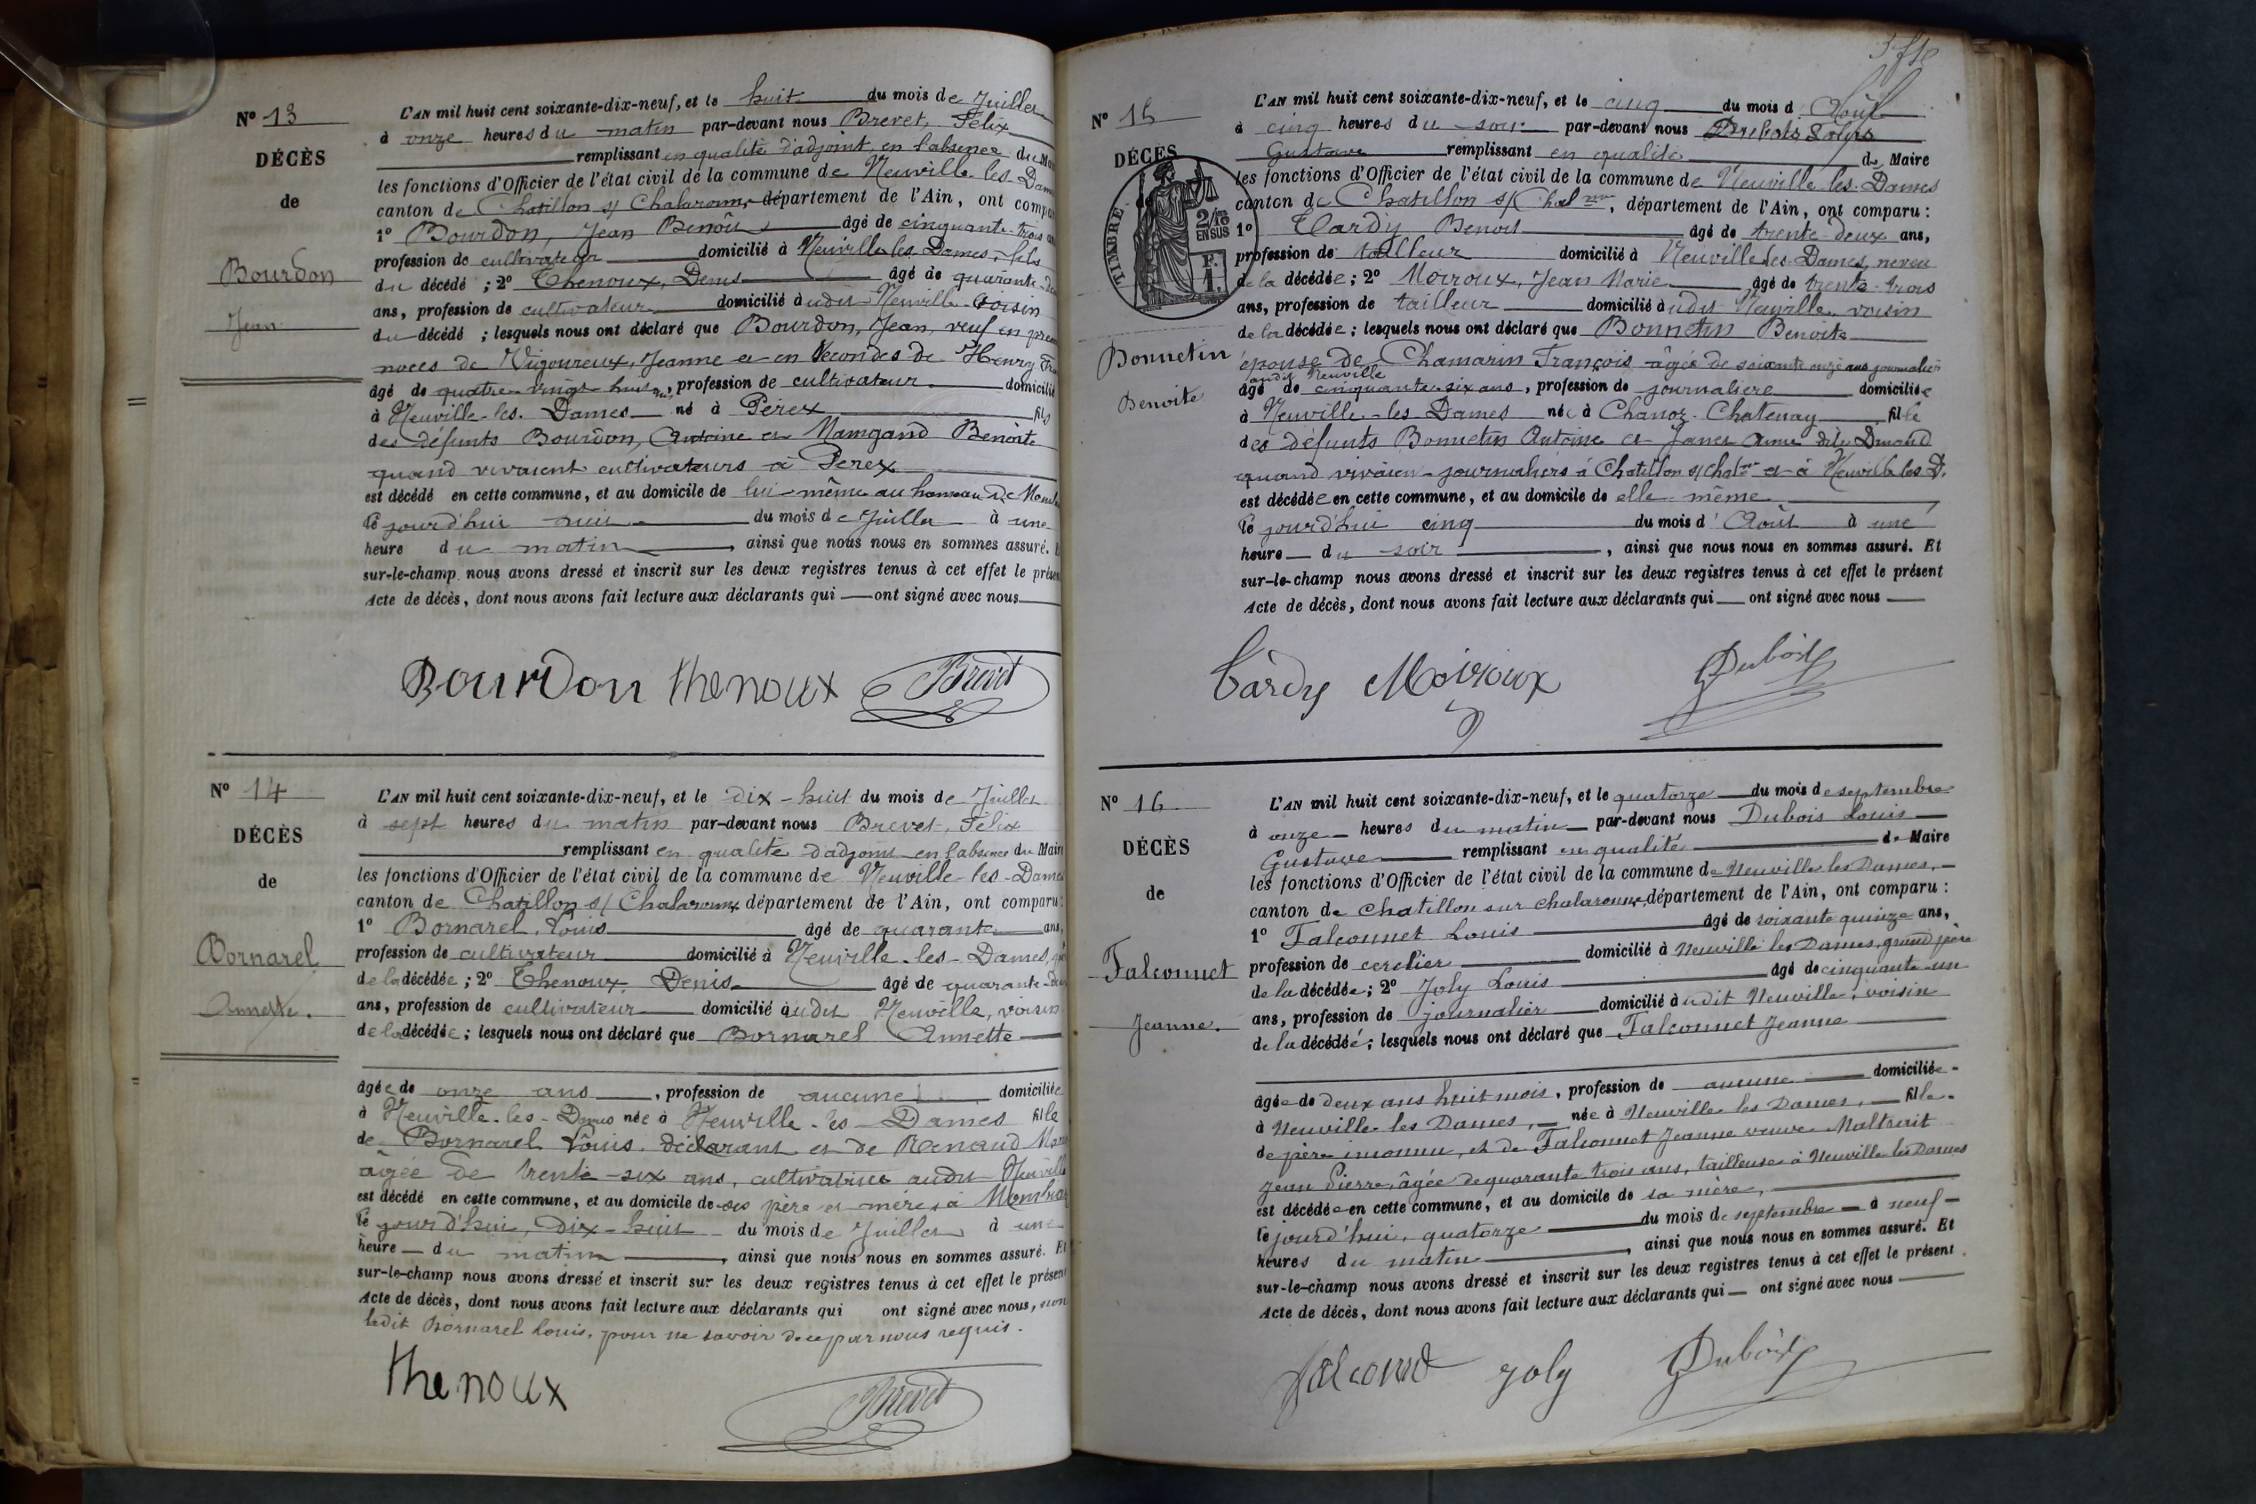 N° 13
DÉCÈS
de
Bourdon
Jean
L'AN mil huit cent soixante-dix-neuf, et le huit du mois de Juillet
à onze heures du matin par-devant nous Brevet, Félix
remplissant en qualité d'adjoint, en l'absence du
les fonctions d'Officier de l'état civil de la commune de Neuville-les-Dames
canton de Chatillon s/ Chalaronne, département de l'Ain, ont
1° Bourdon, Jean Benoît âgé de cinquante-trois
profession de cultivateur domicilié à Neuville-les-Dames, fils
du décédé ; 2° Thenoux, Denis âgé de quarante-
ans, profession de cultivateur domicilié à udit Neuville voisin
du décédé ; lesquels nous ont déclaré que Bourdon, Jean, veuf en
noces de Vigoureux, Jeanne et en secondes de Henry
âgé de quatre-vingt-huit ans, profession de cultivateur domicilié
à Neuville-les-Dames né à Perex fils
des défunts Bourdon, Antoine et Mamgand Benoite
quand vivaient cultivateurs à Perex
est décédé en cette commune, et au domicile de lui-même au hameau de
le jourd'hui huit du mois de Juillet à une
heure du matin, ainsi que nous nous en sommes assuré.
sur-le-champ nous avons dressé et inscrit sur les deux registres tenus à cet effet le présent
Acte de décès, dont nous avons fait lecture aux déclarants qui ont signé avec nous
Bourdon Thenoux Brevet
N° 14
DÉCÈS
de
Bornarel
Annette.
L'AN mil huit cent soixante-dix-neuf, et le dix-huit du mois de Juillet
à sept heures du matin par-devant nous Brevet, Félix
remplissant en qualité d'adjoint en l'absence du Maire
les fonctions d'Officier de l'état civil de la commune de Neuville-les-Dames
canton de Chatillon s/ Chalaronne, département de l'Ain, ont comparu :
1° Bornarel, Louis âgé de quarante ans,
profession de cultivateur domicilié à Neuville-les-Dames,
de la décédée ; 2° Thenoux, Denis âgé de quarante-
ans, profession de cultivateur domicilié à udit Neuville, voisin
de la décédée ; lesquels nous ont déclaré que Bornarel Annette
âgée de onze ans, profession de aucune domiciliée
à Neuville-les-Dames née à Neuville-les-Dames fille
de Bornarel Louis, déclarant et de Renaud
âgée de trente-six ans, cultivatrice audit Neuville
est décédé en cette commune, et au domicile de ses père et mère, à
le jourd'hui, dix-huit du mois de Juillet à une
heure du matin, ainsi que nous nous en sommes assuré. Et
sur-le-champ nous avons dressé et inscrit sur les deux registres tenus à cet effet le présent
Acte de décès, dont nous avons fait lecture aux déclarants qui ont signé avec nous, non
ledit Bornarel Louis, pour ne savoir de ce par nous requis.
Thenoux Brevet
N° 15
DÉCÈS
TIMBRE
2/10
EN SUS
Bonnetin
Benoite
L'AN mil huit cent soixante-dix-neuf, et le cinq du mois d'Août
à cinq heures du soir par-devant nous Dubois
Gustave remplissant en qualité de Maire
les fonctions d'Officier de l'état civil de la commune de Neuville-les-Dames
canton de Chatillon s/ Chal nne, département de l'Ain, ont comparu :
1° Tardy Benoit âgé de trente-deux ans,
profession de tailleur domicilié à Neuville-les-Dames, neveu
de la décédée ; 2° Moiroux, Jean Marie âgé de trente-trois
ans, profession de tailleur domicilié à udit Neuville voisin
de la décédée ; lesquels nous ont déclaré que Bonnetin Benoite
épouse de Chamarin François âgé de soixante onze ans journalier
audit Neuville
âgé de cinquante-six ans, profession de journalière domiciliée
à Neuville-les-Dames née à Chanoz-Chatenay fille
des défunts Bonnetin Antoine et Janet Anne dite
quand vivaien journaliers à Chatillon s/ Chal ne et à Neuville les D.
est décédée en cette commune, et au domicile de elle-même
le jourd'hui cinq du mois d'Août à une
heure du soir, ainsi que nous nous en sommes assuré. Et
sur-le-champ nous avons dressé et inscrit sur les deux registres tenus à cet effet le présent
Acte de décès, dont nous avons fait lecture aux déclarants qui ont signé avec nous
Tardy Moiroux Dubois
N° 16
DÉCÈS
de
Falconnet
Jeanne.
L'AN mil huit cent soixante-dix-neuf, et le quatorze du mois de septembre
à onze heures du matin par-devant nous Dubois Louis
Gustave remplissant en qualité de Maire
les fonctions d'Officier de l'état civil de la commune de Neuville les Dames,
canton de Chatillon sur Chalaronne, département de l'Ain, ont comparu :
1° Falconnet Louis âgé de soixante quinze ans,
profession de cerclier domicilié à Neuville les Dames, grand père
de la décédée ; 2° Joly Louis âgé de cinquante-un
ans, profession de journalier domicilié à udit Neuville, voisin
de la décédée ; lesquels nous ont déclaré que Falconnet Jeanne
âgée de deux ans huit mois, profession de aucune domiciliée
à Neuville les Dames, née à Neuville les Dames, fille
de père inconnu, et de Falconnet Jeanne veuve Maltrait
Jean Pierre, âgée de quarante trois ans, tailleuse à Neuville les Dames
est décédée en cette commune, et au domicile de sa mère,
le jourd'hui, quatorze du mois de septembre à neuf
heures du matin, ainsi que nous nous en sommes assuré. Et
sur-le-champ nous avons dressé et inscrit sur les deux registres tenus à cet effet le présent
Acte de décès, dont nous avons fait lecture aux déclarants qui ont signé avec nous
Joly Dubois